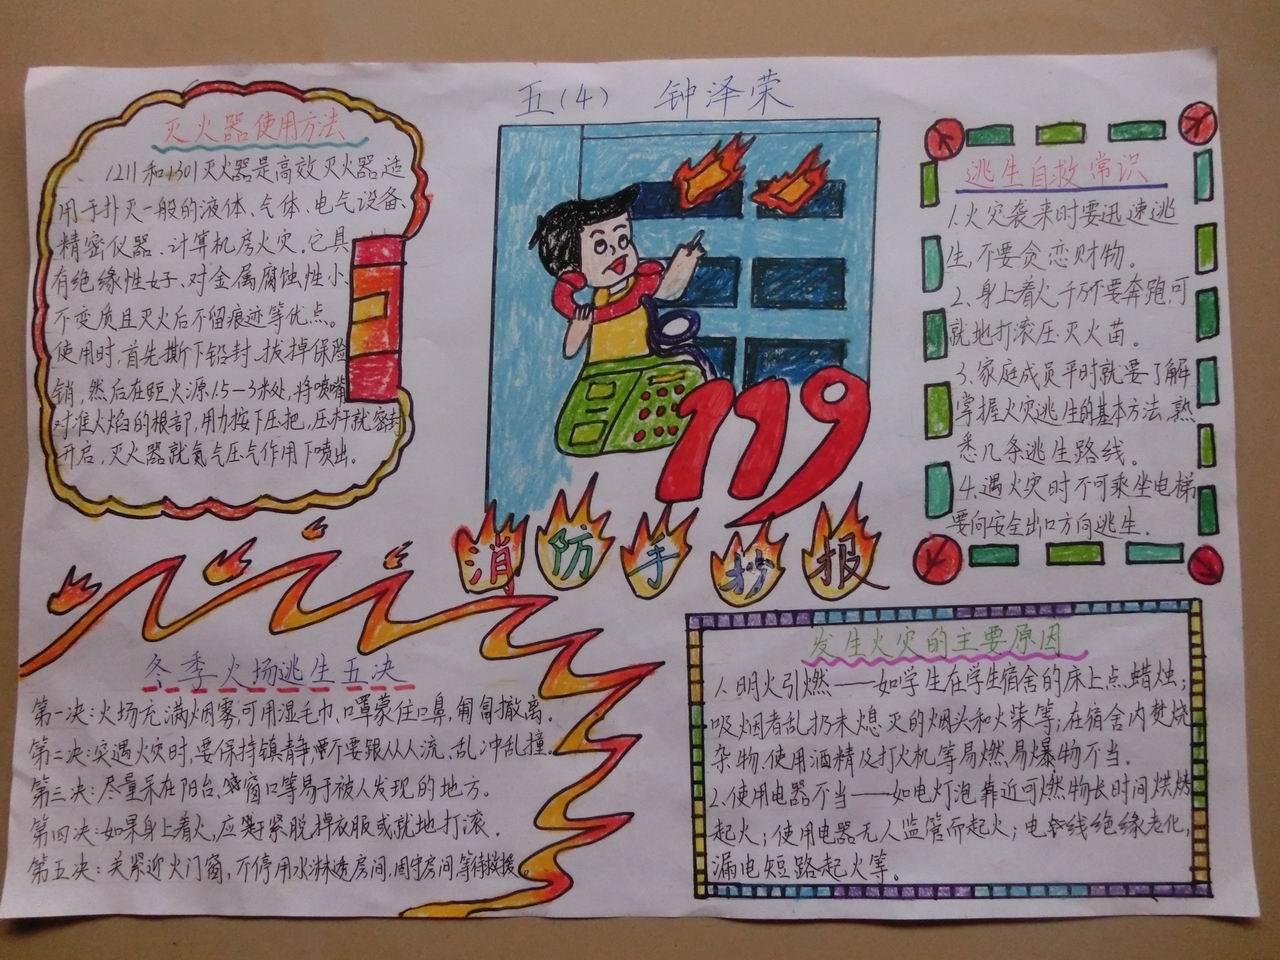 五(4) 钟泽荣
灭火器使用方法
1211和1301灭火器是高效灭火器适
用于扑灭一般的液体、气体、电气设备、
精密仪器、计算机房火灾。它具
有绝缘性好、对金属腐蚀性小、
不变质且灭火后不留痕迹等优点。
使用时,首先撕下铅封,拔掉保险
销,然后在距火源1.5—3米处,将喷嘴
对准火焰的根部,用力按下压把,压杆就密封
开启,灭火器就氮气压气作用下喷出。
119
消防手抄报
逃生自救常识
1.火灾袭来时要迅速逃
生,不要贪恋财物。
2、身上着火,千万不要奔跑,可
就地打滚压灭火苗。
3、家庭成员平时就要了解
掌握火灾逃生的基本方法,熟
悉几条逃生路线。
4、遇火灾时不可乘坐电梯
要向安全出口方向逃生.
冬季火场逃生五决
第一决:火场充满烟雾,可用湿毛巾、口罩蒙住口鼻,匍匐撤离。
第二决:突遇火灾时,要保持镇静,不要跟从人流、乱冲乱撞。
第三决:尽量呆在阳台、窗口等易于被人发现的地方。
第四决:如果身上着火,应赶紧脱掉衣服或就地打滚.
第五决:关紧近火门窗,不停用水淋透房间,固守房间,等待救援。
发生火灾的主要原因
1.明火引燃——如学生在学生宿舍的床上点蜡烛;
吸烟者乱扔未熄灭的烟头和火柴等;在宿舍内焚烧
杂物、使用酒精及打火机等易燃易爆物不当.
2.使用电器不当——如电灯泡靠近可燃物长时间烘烤
起火;使用电器无人监管而起火;电线绝缘老化,
漏电短路起火等。